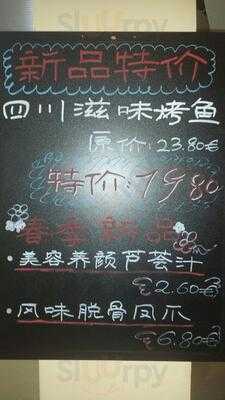 Sluurpy
新品特价
四川滋味烤鱼
原价:23.80€
特价:19.80
春季新品
·美容养颜芦荟汁
2.60€
·风味脱骨凤爪
6.80€
Sluurpy